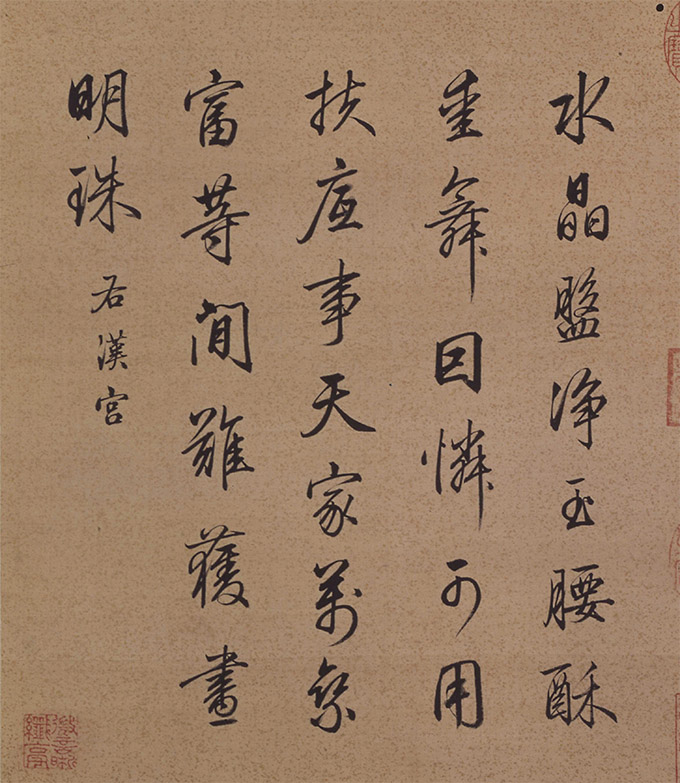 水晶盤淨玉腰酥
重舞因憐可用
扶應事天家萬乘
富等閒難獲畫
明珠
右漢宮